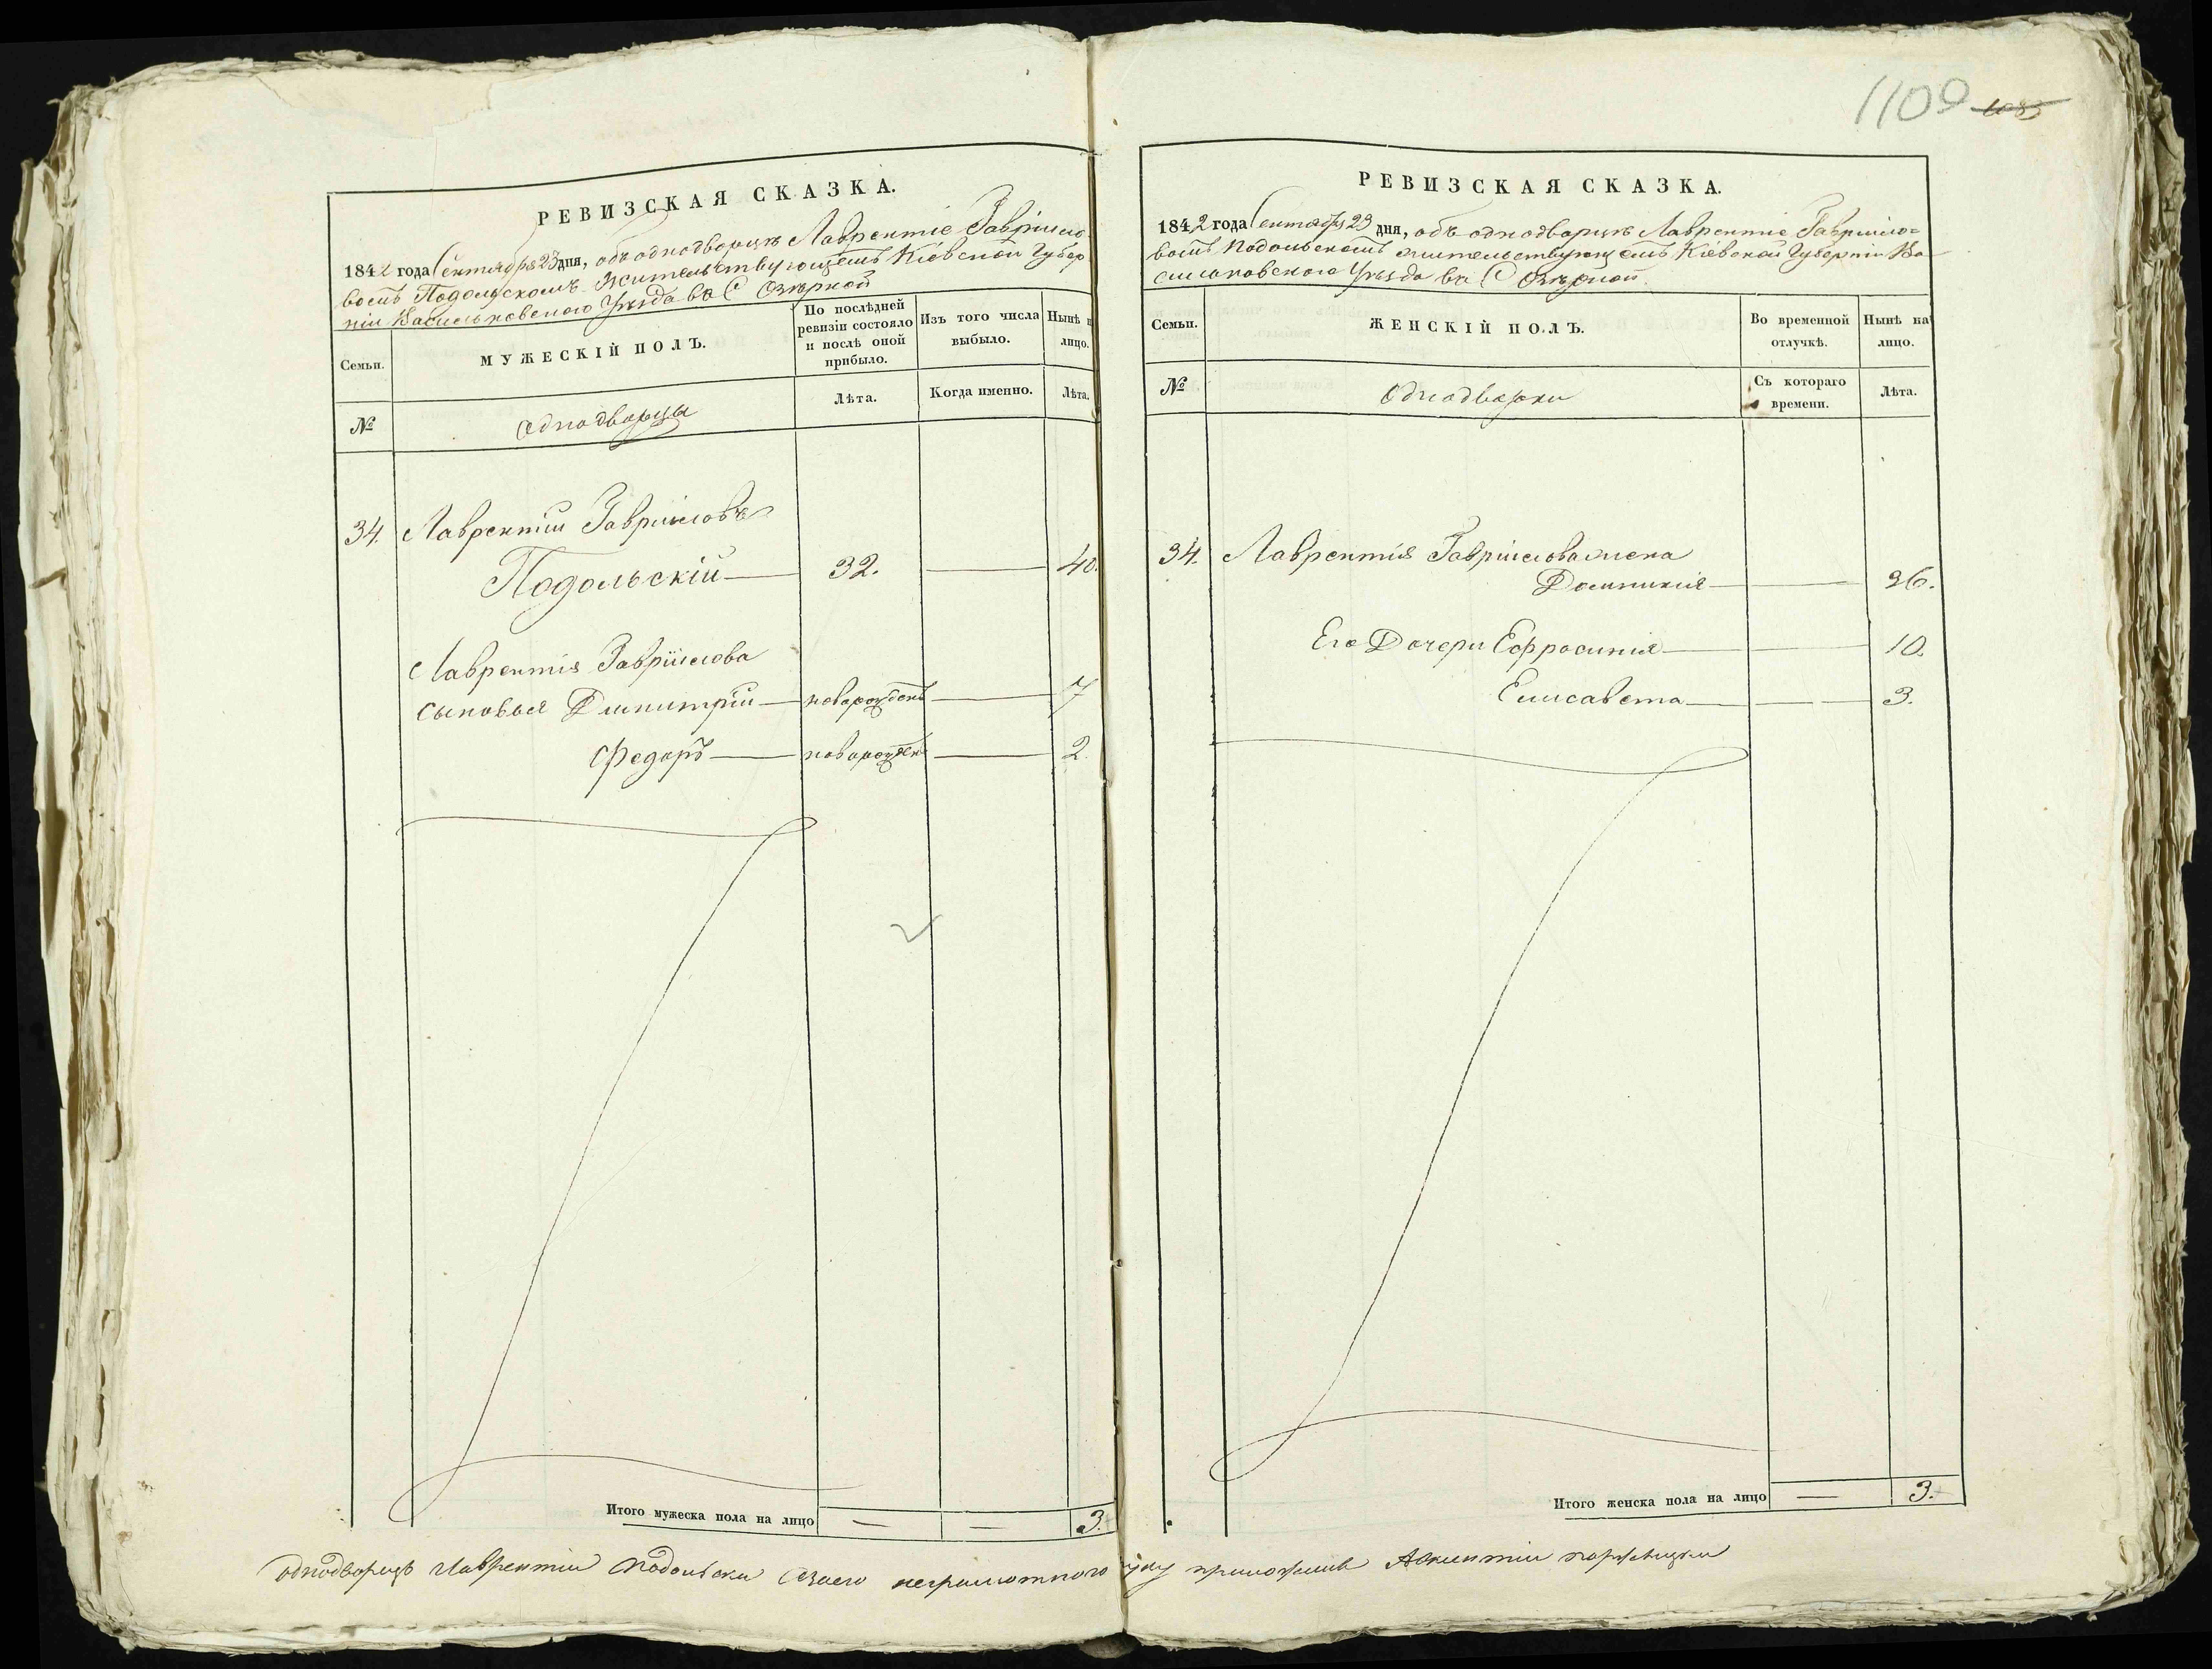 1109 1085
РЕВИЗСКАЯ СКАЗКА.
1842 года Сентября 23 дня, объ однодворцѣ Лаврентіе Гавріило-
вомъ Подольскомъ жительствующемъ Кіевской Губер
ніи Васильковскаго Уѣзда въ С Озѣрной
Семьи.
МУЖЕСКІЙ ПОЛЪ.
По послѣдней ревизіи состояло и послѣ оной прибыло.
Изъ того числа выбыло.
Нынѣ н лицо.
№
однодворцы
Лѣта.
Когда именно.
Лѣта.
34. Лаврентій Гавріиловъ
Подольскій — 32. — 40.
Лаврентія Гавріилова
сыновья Димитрій — новорожден — 7
Федоръ — новорожден — 2.
Итого мужеска пола на лицо — — 3.
РЕВИЗСКАЯ СКАЗКА.
1842 года Сентября 23 дня, объ однодворцѣ Лаврентіе Гавріило-
вомъ Подольскомъ жительствующемъ Кіевской Губерніи Ва
сильковского Уѣзда въ С Озѣрной
Семьи.
ЖЕНСКІЙ ПОЛЪ.
Во временной отлучкѣ.
Нынѣ на лицо.
№
Однодворки
Съ котораго времени.
Лѣта.
34. Лаврентія Гавріилова жена
Домникія — — 36.
Его Дочери Ефросинія — — 10.
Елисавета — — 3.
Итого женска пола на лицо — 3.
однодворецъ Лаврентіи Подольски Азаего неграмотного руку приложилъ